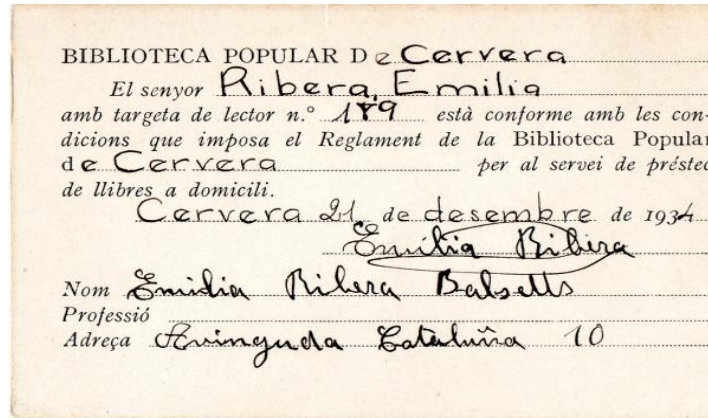 BIBLIOTECA POPULAR De Cervera
El senyor Ribera, Emilia
amb targeta de lector n.º 179 està conforme amb les con-
dicions que imposa el Reglament de la Biblioteca Popular
de Cervera per al servei de préstec
de llibres a domicili.
Cervera 21 de desembre de 1934
Emília Ribera
Nom Emilia Ribera Balsells
Professió
Adreça Avinguda Cataluña 10